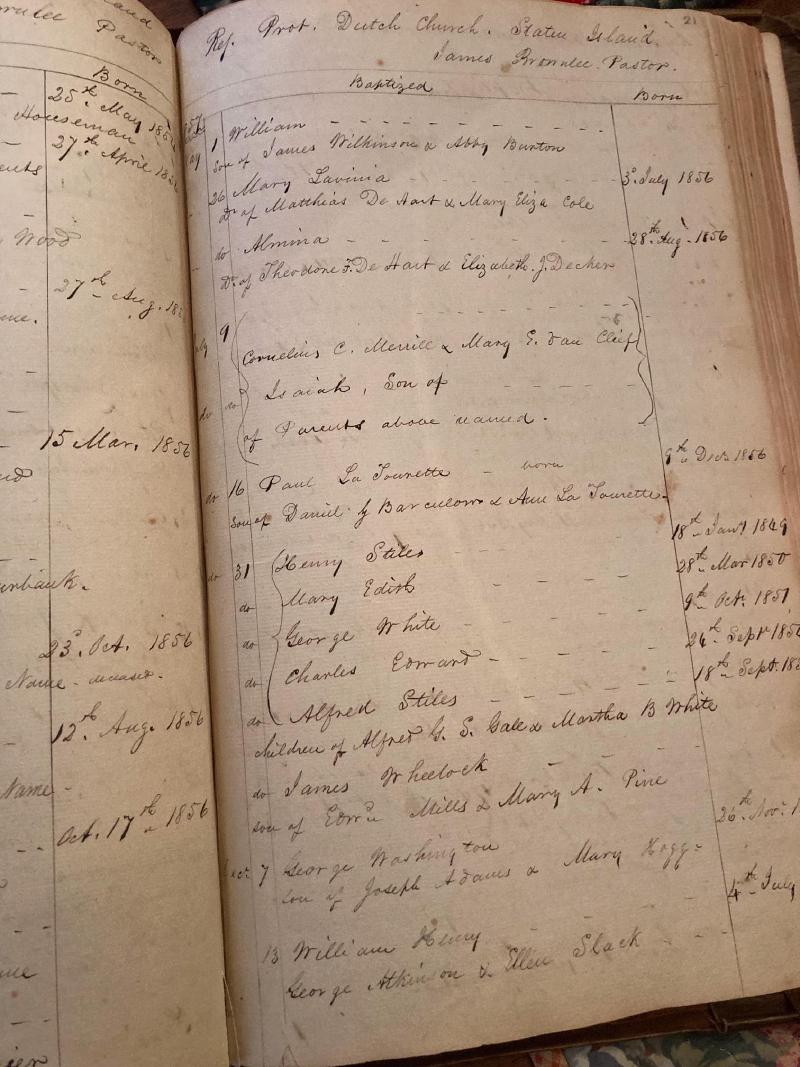 Pastor
Born
25th May
Houseman
27th April
Wood
27th Aug.
15 Mar. 1856
23d. Oct. 1856
Name - deceased.
12th Aug. 1856
Name -
Oct. 17th 1856
21
Ref. Prot. Dutch Church. Staten Island.
James Brownlee. Pastor.
Baptized Born
1 William
son of James Wilkinson & Abby Burton
26 Mary Lavinia 3d July 1856
Dr of Matthias De Hart & Mary Eliza Cole
do Almina 28th Aug. 1856
Dr. of Theodore F. De Hart & Elizabeth. J. Decker
9
Cornelius C. Merrill & Mary E. Van Clief
do do Isaiah, Son of
of Parents above named.
do 16 Paul La Tourette - born 9th Decr 1856
son of Daniel Barculow & Ann La Tourette
do 31 Henry Stiles 18th Jany 1849
do Mary Edith 28th Mar 1850
do George White 9th Oct. 1851
do Charles Edward 24th Sept
do Alfred Stiles 18th Sept.
children of Alfred G. S. Gale & Martha B White
do James Wheelock
son of Edwd Mills & Mary A. Pine 26th Nov.
7 George Washington
son of Joseph Adams & Mary Hogg 4th July
13 William Henry
George Atkinson & Ellen Slack